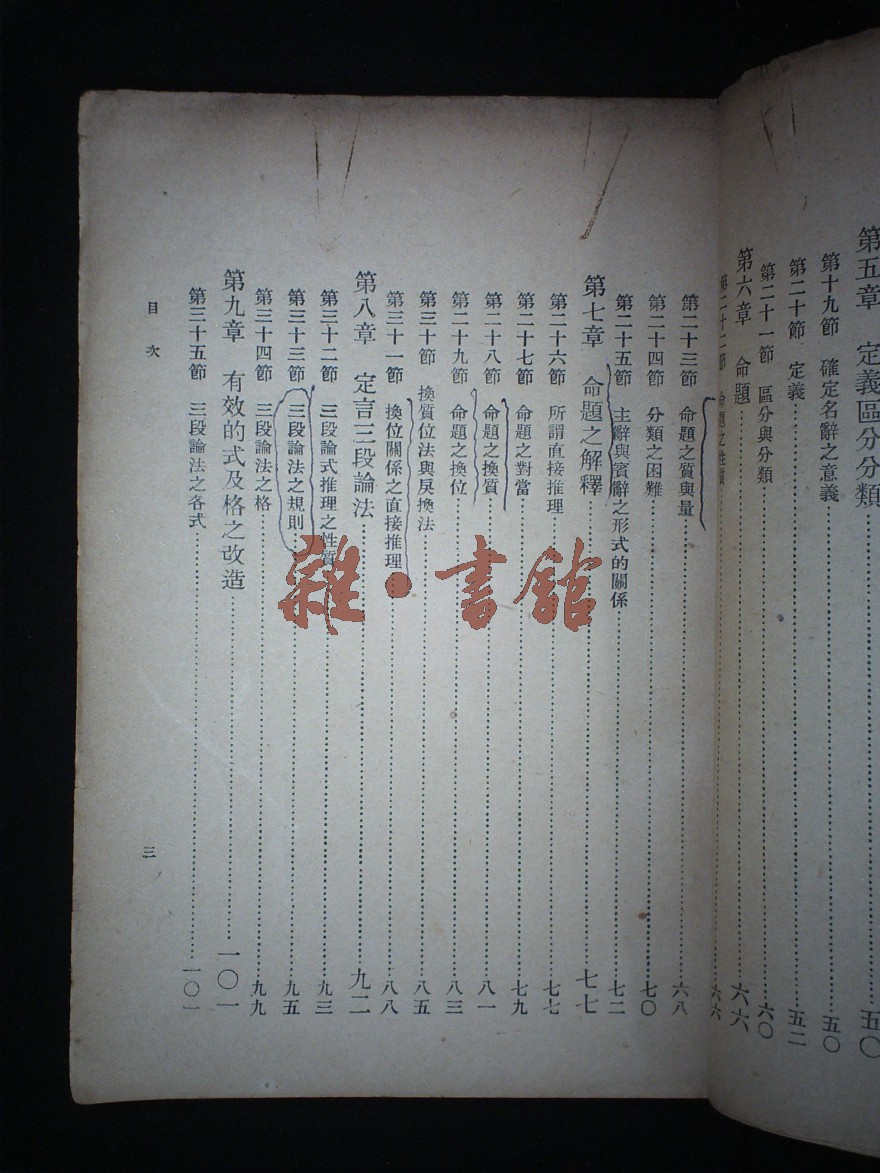 第五章　定義區分分類……五〇
第十九節　確定名辭之意義……五〇
第二十節　定義……五二
第二十一節　區分與分類……六〇
第六章　命題……六六
第二十二節　命題之性質……六六
第二十三節　命題之質與量……六八
第二十四節　分類之困難……七〇
第二十五節　主辭與賓辭之形式的關係……七二
第七章　命題之解釋……七七
第二十六節　所謂直接推理……七七
第二十七節　命題之對當……七九
第二十八節　命題之換質……八一
第二十九節　命題之換位……八三
第三十節　換質位法與戾換法……八五
第三十一節　換位關係之直接推理……八八
第八章　定言三段論法……九二
第三十二節　三段論式推理之性質……九三
第三十三節　三段論法之規則……九五
第三十四節　三段論法之格……九九
第九章　有效的式及格之改造……一〇一
第三十五節　三段論法之各式……一〇一
目次
三
雜·書館